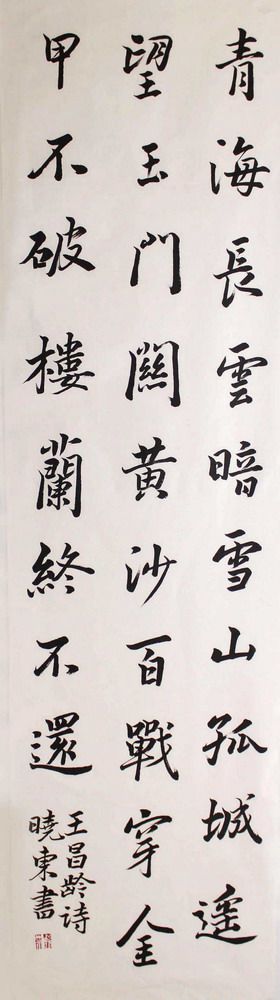 青海長雲暗雪山孤城遥
望玉門關黄沙百戰穿金
甲不破樓蘭終不還
王昌龄诗
曉東書